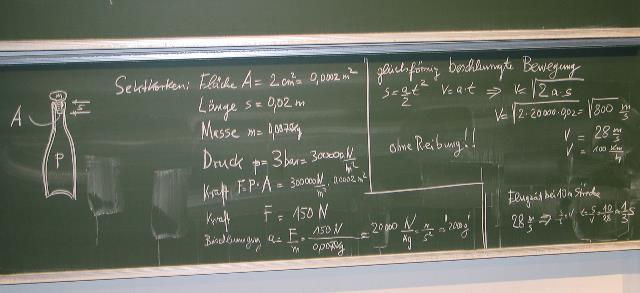 A
m
s
P
Sektkorken: Fläche A = 2cm² = 0,0002 m²
Länge s = 0,02 m
Masse m = 0,0075kg
Druck p = 3bar = 300000 N/m²
Kraft F = P · A = 300000 N/m² · 0,0002 m²
Kraft F = 150 N
Beschleunigung a = F/m = 150 N / 0,0075kg = 20000 N/kg = m/s² = "2000g"
gleichförmig beschleunigte Bewegung
s = a/2 t² v = a·t ⇒ v = √2a·s
v = √2·20000·0,02 = √800 m/s
ohne Reibung!!
v = 28 m/s
v = 100 km/h
Flugzeit bei 10m Strecke
28 m/s ⇒